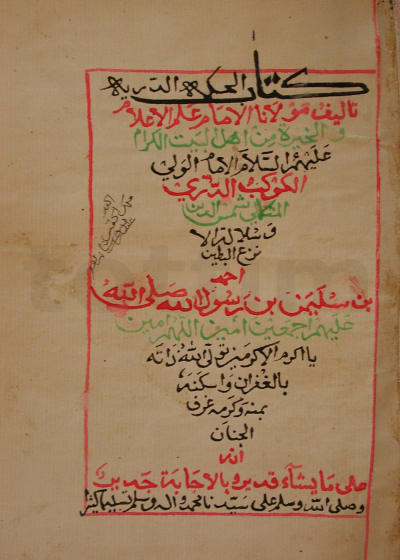 كتاب الحكم الدرية
تاليف مولانا الامام علم الاعلام
والخيرة من اهل البيت الكرام
عليهم السلام الامام الولي
الكوكب الدري
المتكل شمس الدين
وسلالة الا
نزع البطين
احمد
بن سليمن بن رسول الله صلى الله
عليهم اجمعين امين اللهم امين
يا اكرم الاكرمين تولى الله ذاته
بالغفران واسكنه
بمنه وكرمه غرف
الجنان
انه
على ما يشاء قدير وبالاجابة جدير
وصلى الله وسلم على سيدنا محمد واله وسلم تسليما كثيرا